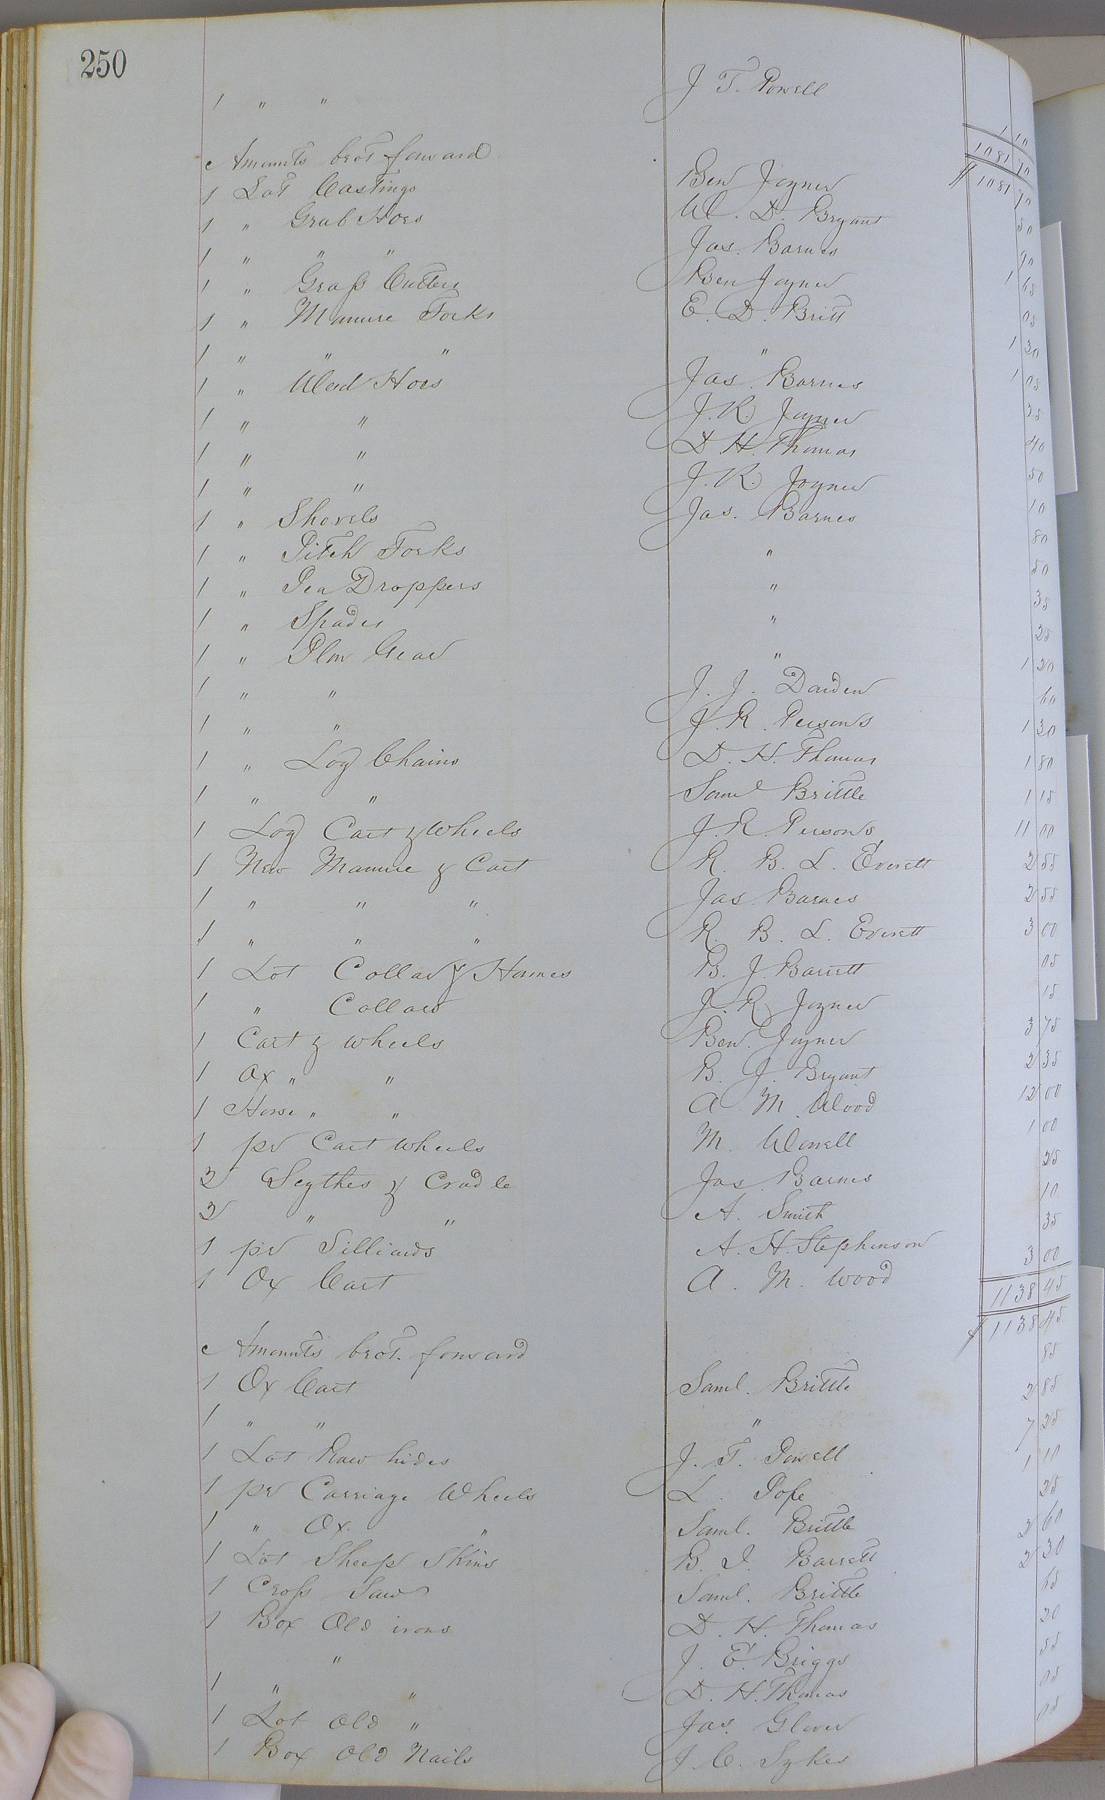 250
1 " " J T. Powell 1 10
1081 70
Amounts brot forward $ 1081 70
1 Lot Castings Ben Joyner 50
1 " Grub Hoes W. D. Bryant 90
1 " " " Jas. Barnes 1 65
1 " Graſs Cutters Ben Joyner 05
1 " Manure Forks E. D. Britt 1 30
1 " " " " 1 05
1 " Weed Hoes Jas. Barnes 25
1 " " J. R. Joyner 40
1 " " D. H. Thomas 50
1 " " J. R. Joyner 10
1 " Shovels Jas. Barnes 80
1 " Pitch Forks " 50
1 " Pea Droppers " 35
1 " Spades " 25
1 " Plow Gear " 1 20
1 " " J. J. Darden 60
1 " " J. R. Persons 1 30
1 " Log Chains D. H. Thomas 1 80
1 " " Saml Brittle 1 15
1 Log Cart & Wheels J. R. Persons 11 00
1 New Manure & Cart R. B. L. Everett 2 55
1 " " " Jas Barnes 2 55
1 " " " R. B. L. Everett 3 00
1 Lot Collar & Hames B. J. Barrett 05
1 " Collars J. R. Joyner 15
1 Cart & Wheels Ben. Joyner 3 75
1 Ox " " B. J. Bryant 2 35
1 Horse " " A M. Wood 12 00
1 pr Cart Wheels M. 1 00
2 Scythes & Cradle Jas. Barnes 25
2 " " A. Smith 10
1 pr A. H. Stephenson 35
1 Ox Cart A. M. Wood 3 00
1138 45
Amounts brot. forward $ 1138 45
1 Ox Cart Saml. Brittle 85
1 " " " 2 85
1 Lot Raw hides J. T. Powell 7 25
1 pr Carriage Wheels L. Pope 1 10
1 " Ox. " Saml. Brittle 25
1 Lot Sheep Skins B. J. Barrett 2 60
1 Croſs Saw Saml. Brittle 2 30
1 Box Old irons D. H. Thomas 65
" J. E. Briggs 20
1 " " D. H. Thomas 55
1 Lot Old " Jas. Glover 05
1 Box Old Nails J. C. Sykes 05